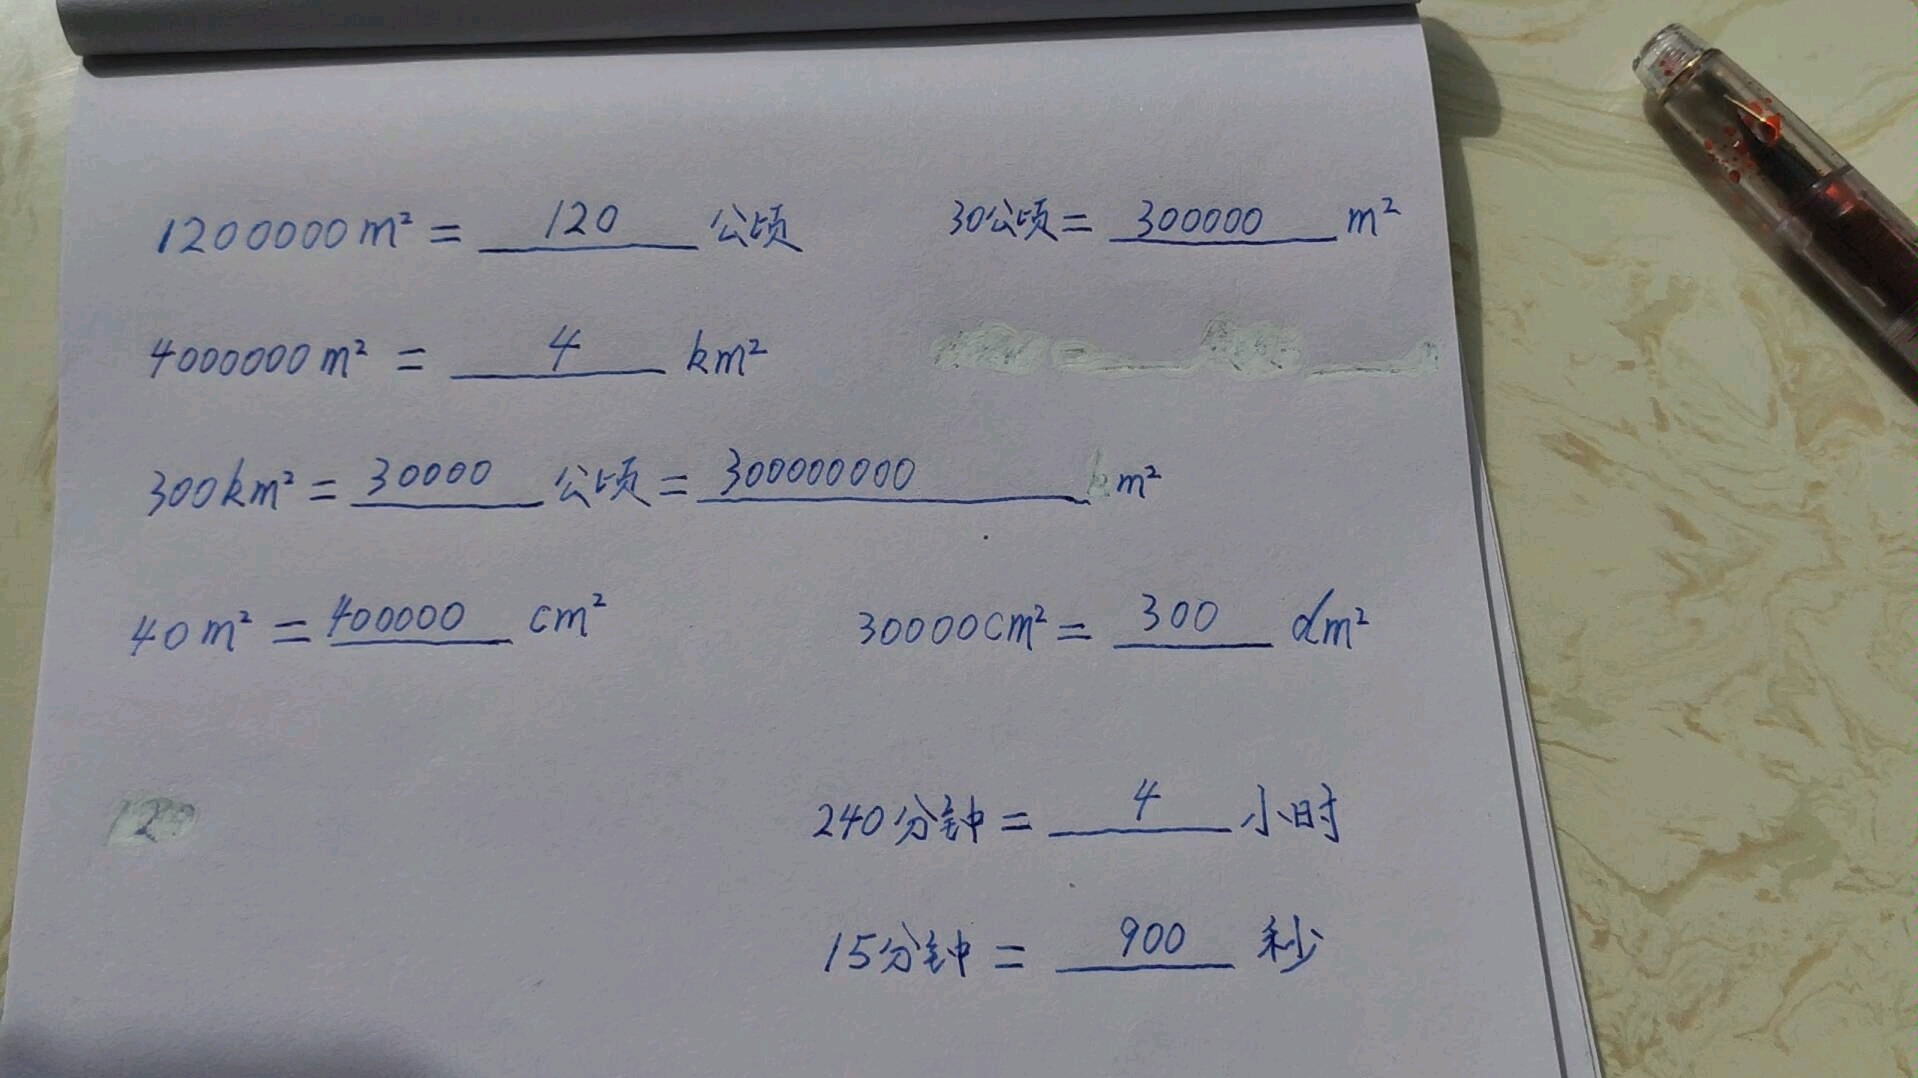 1200000m² = 120 公顷 30公顷 = 300000 m²
4000000m² = 4 km²
300km² = 30000 公顷 = 300000000 m²
40m² = 400000 cm² 30000cm² = 300 dm²
240分钟 = 4 小时
15分钟 = 900 秒